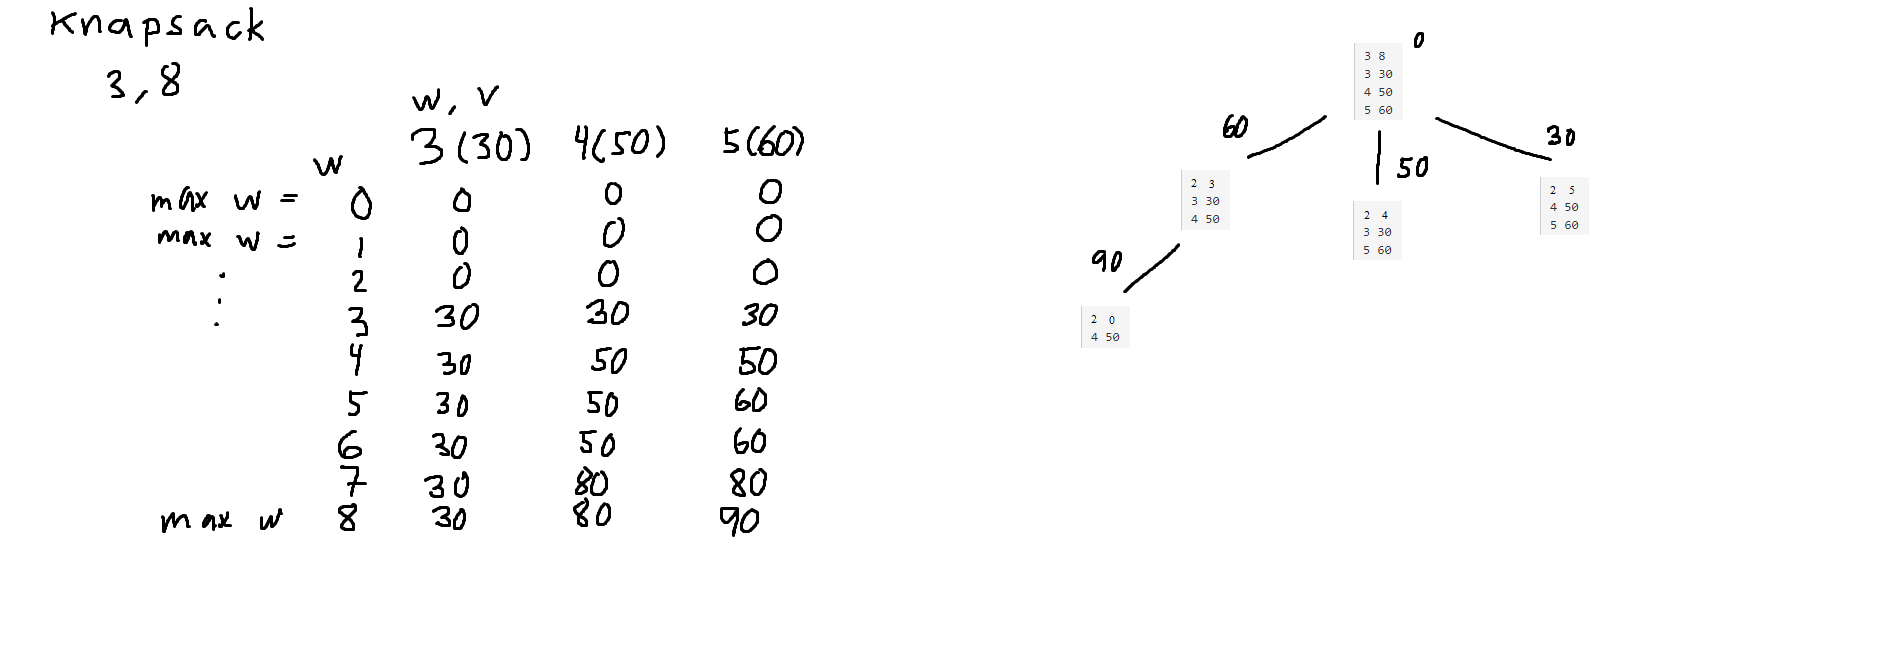 Knapsack
3, 8
w, v
w 3 (30) 4(50) 5(60)
max w = 0 0 0 0
max w = 1 0 0 0
2 0 0 0
3 30 30 30
4 30 50 50
5 30 50 60
6 30 50 60
7 30 80 80
max w 8 30 80 90
0
3 8
3 30
4 50
5 60
60
50
30
2 3
3 30
4 50
2 4
3 30
5 60
2 5
4 50
5 60
90
2 0
4 50